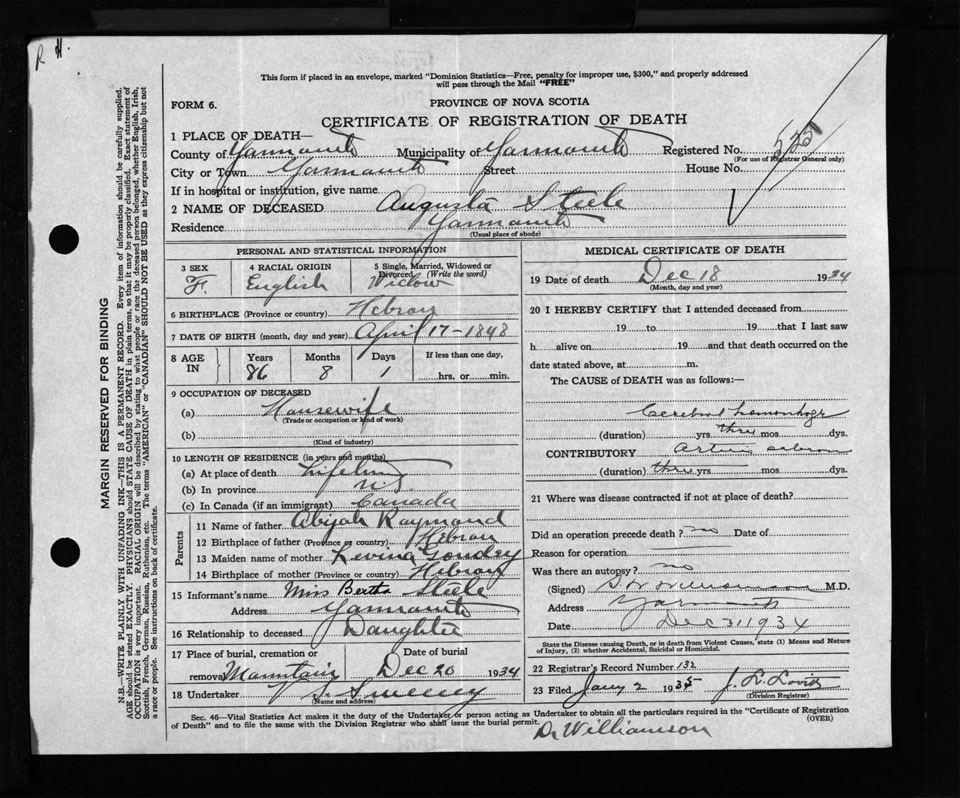 R. H.
This form if placed in an envelope, marked "Dominion Statistics—Free, penalty for improper use, $300," and properly addressed
will pass through the Mail "FREE"
FORM 6.
PROVINCE OF NOVA SCOTIA
CERTIFICATE OF REGISTRATION OF DEATH
1 PLACE OF DEATH—
County of Yarmouth Municipality of Yarmouth Registered No.
(For use of Registrar General only)
City or Town Yarmouth Street House No.
If in hospital or institution, give name
2 NAME OF DECEASED Augusta Steele
Residence Yarmouth
(Usual place of abode)
PERSONAL AND STATISTICAL INFORMATION
3 SEX F. 4 RACIAL ORIGIN English 5 Single, Married, Widowed or Divorced (Write the word) Widow
6 BIRTHPLACE (Province or country) Hebron
7 DATE OF BIRTH (month, day and year) April 17-1848
8 AGE IN Years 86 Months 8 Days 1 If less than one day, hrs. or min.
9 OCCUPATION OF DECEASED
(a) Housewife
(Trade or occupation or kind of work)
(b)
(Kind of industry)
10 LENGTH OF RESIDENCE (in years and months)
(a) At place of death Lifetime
(b) In province
(c) In Canada (if an immigrant) Canada
Parents
11 Name of father Abijah Raymond
12 Birthplace of father (Province or country) Hebron
13 Maiden name of mother Levina Goudey
14 Birthplace of mother (Province or country) Hebron
15 Informant's name Miss Bertha Steele
Address Yarmouth
16 Relationship to deceased Daughter
17 Place of burial, cremation or removal Mountain Date of burial Dec 20 1934
18 Undertaker V. S. Sweeney
(Name and address)
MEDICAL CERTIFICATE OF DEATH
19 Date of death Dec 18 1934
(Month, day and year)
20 I HEREBY CERTIFY that I attended deceased from
19 to 19 that I last saw
h alive on 19 and that death occurred on the
date stated above, at m.
The CAUSE of DEATH was as follows:—
Cerebral hemorrhage
(duration) yrs three mos. dys.
CONTRIBUTORY
(duration) three yrs mos. dys.
21 Where was disease contracted if not at place of death?
Did an operation precede death? no Date of
Reason for operation
Was there an autopsy? no
(Signed) Williamson M.D.
Address Yarmouth
Date Dec 21 1934
State the Disease causing Death, or in death from Violent Causes, state (1) Means and Nature
of Injury, (2) whether Accidental, Suicidal or Homicidal.
22 Registrar's Record Number 132
23 Filed Jany 2 1935
(Division Registrar)
Sec. 46—Vital Statistics Act makes it the duty of the Undertaker or person acting as Undertaker to obtain all the particulars required in the "Certificate of Registration
of Death" and to file the same with the Division Registrar who shall issue the burial permit. (OVER)
Dr Williamson
MARGIN RESERVED FOR BINDING
N.B.—WRITE PLAINLY WITH UNFADING INK—THIS IS A PERMANENT RECORD. Every item of information should be carefully supplied.
AGE should be stated EXACTLY. PHYSICIANS should STATE CAUSE OF DEATH in plain terms, so that it may be properly classified. Exact statement of
OCCUPATION is very important. RACIAL ORIGIN will be described by stating to what people or race the deceased person belonged, whether English, Irish,
Scottish, French, German, Russian, Ruthenian, etc. The terms "AMERICAN" or "CANADIAN" SHOULD NOT BE USED as they express citizenship but not
a race or people. See instructions on back of certificate.